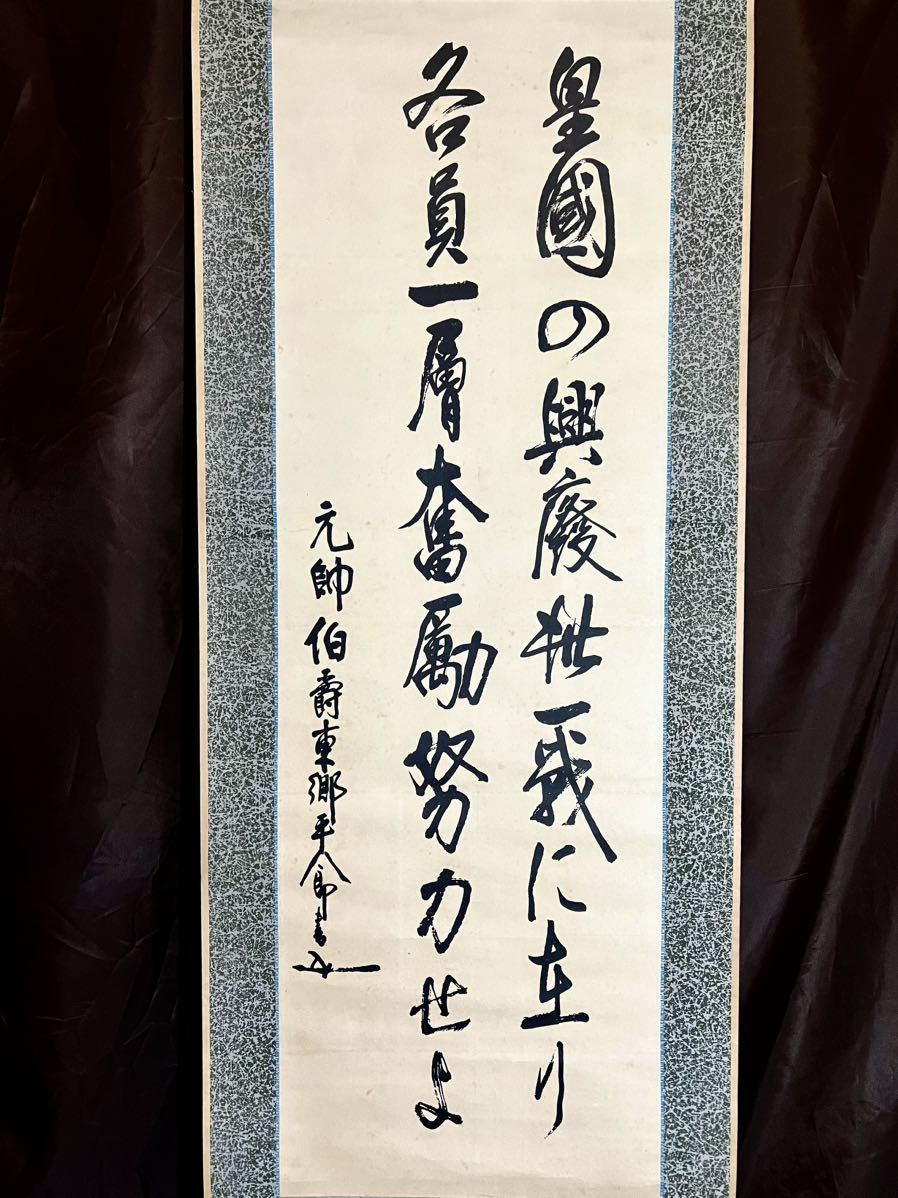 皇國の興廢此一戰に在り
各員一層奮勵努力せよ
元帥伯爵東郷平八郎書